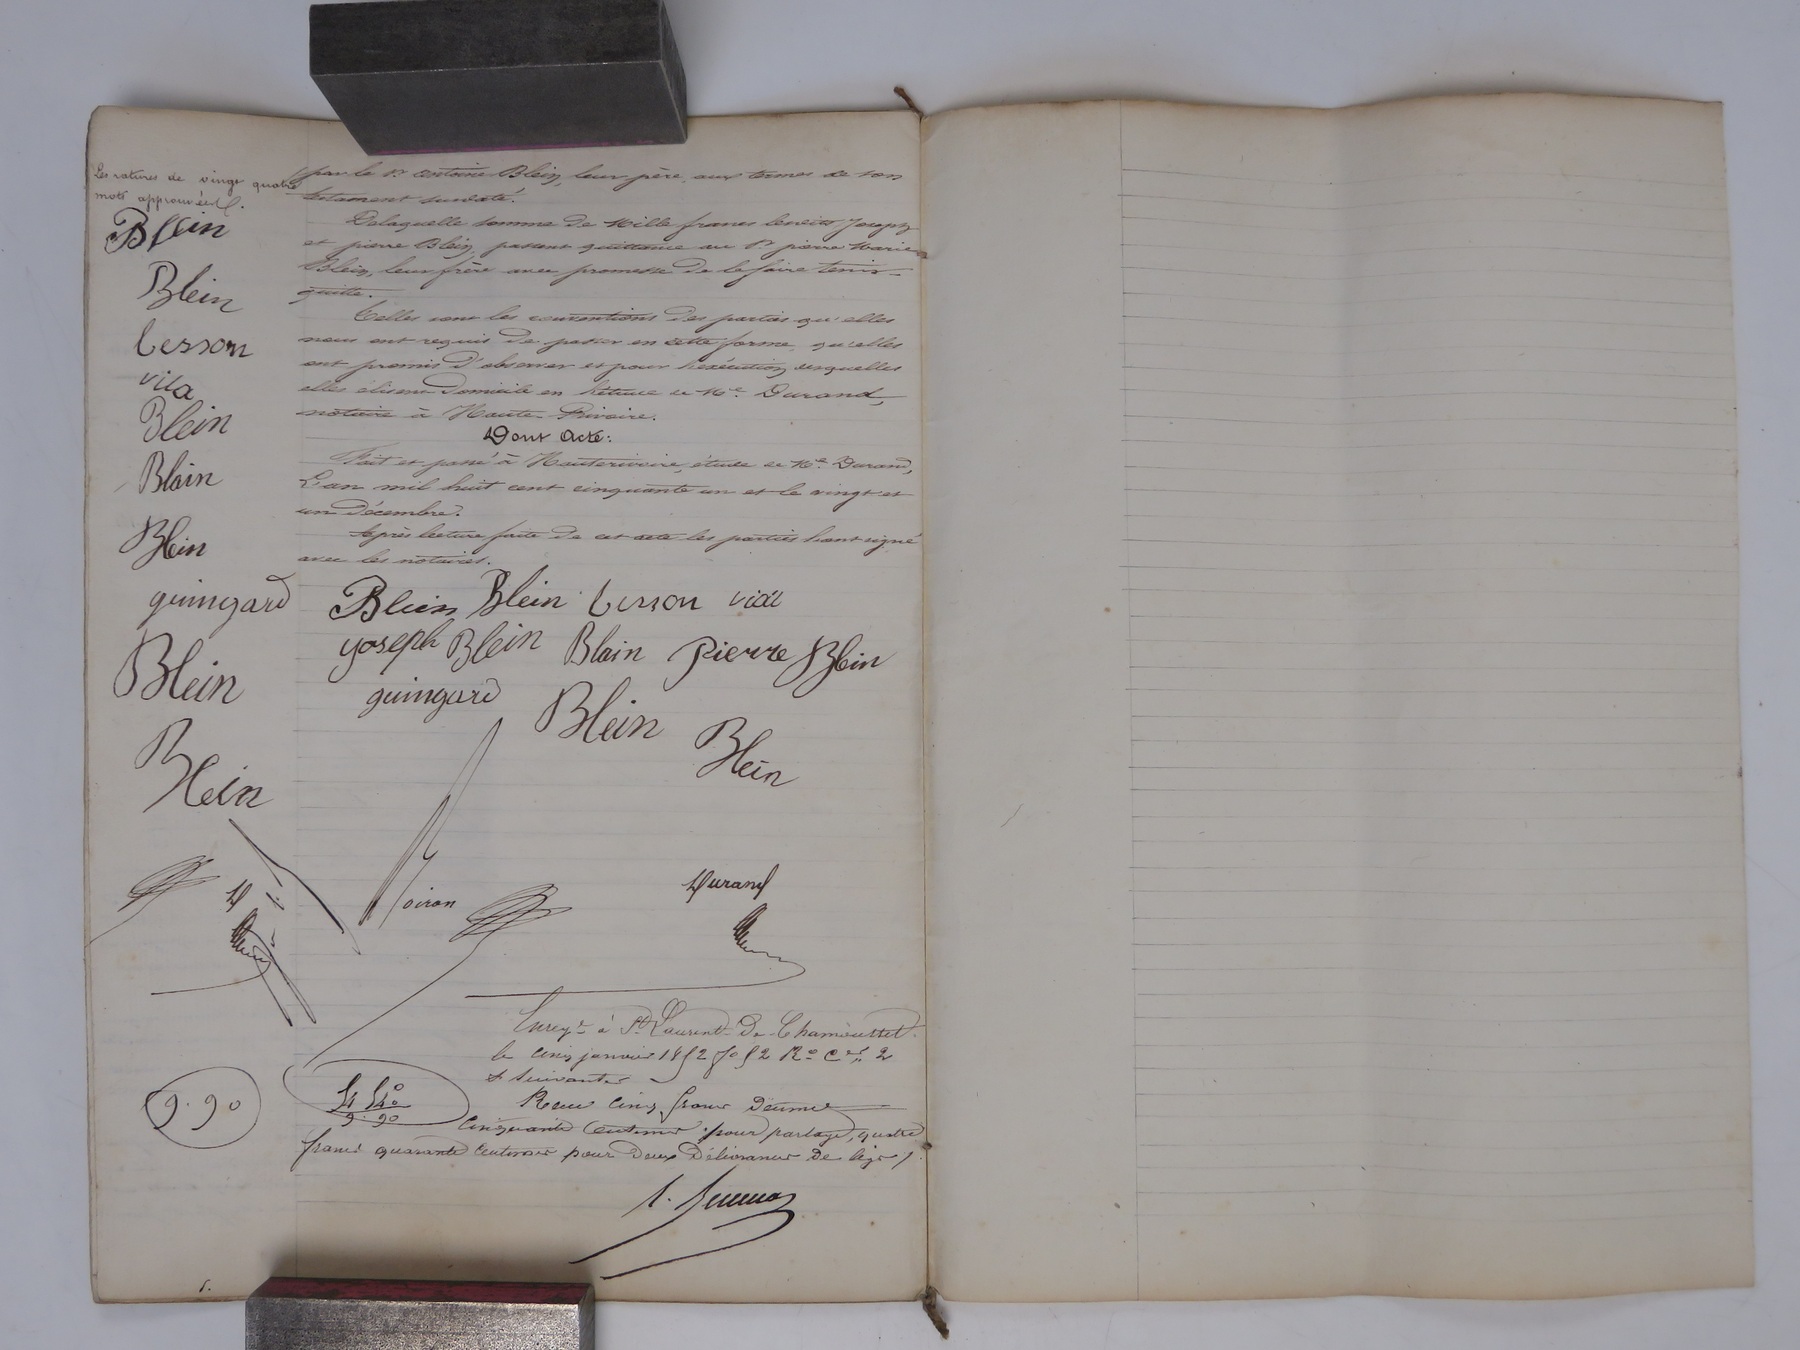 Les ratures de vingt quatre
mots approuvées.
Blein
Blein
besson
vial
Blein
Blain
Blein
guingard
Blein
Blein
9.90
par le Sr. Antoine Blein, leur père, aux termes de son
testament susdaté.
De laquelle somme de Mille francs lesdits Joseph
et pierre Blein, passent quittance au Sr. pierre Marie
Blein, leur frère avec promesse de le faire tenir
quitte.
Telles sont les conventions des parties qu'elles
nous ont requis de passer en cette forme, qu'elles
ont promis d'observer et pour l'exécution desquelles
elles élisent domicile en l'étude de Me. Durand,
notaire à Haute-Rivoire.
Dont Acte:
Fait et passé à Hauterivoire, étude de Me. Durand,
L'an mil huit cent cinquante un et le vingt et
un Décembre.
Après lecture faite de cet acte les parties l'ont signé
avec les notaires.
Blein Blein besson vial
yoseph Blein Blain Pierre Blein
guingard Blein Blein
Voiron Durand
Enregé à St. Laurent-De-Chamousset
le cinq janvier 1852 fo 52 Ro Ces. 2
& suivantes
Reçu cinq francs
cinquante centimes pour partage, quatre
francs quarante centimes pour deux Délivrances de legs
5.50
4.40
9.90